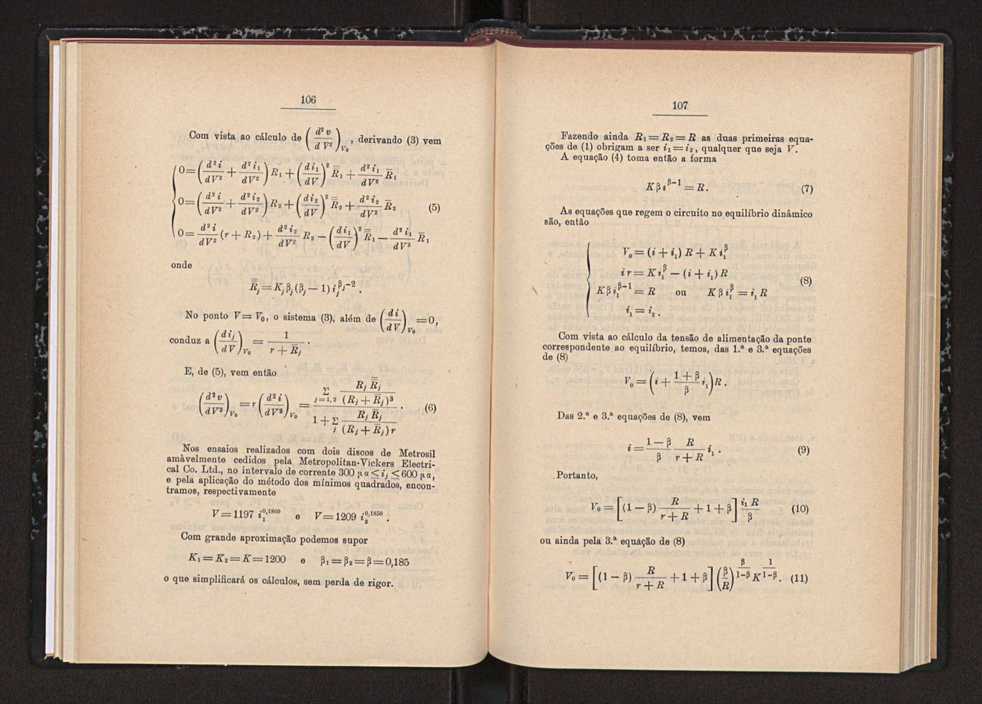 106
Com vista ao cálculo de (d² v / d V²)_V₀, derivando (3) vem
0 = (d² i / d V² + d² i₁ / d V²) R₁ + (d i₁ / d V)² R̿₁ + d² i₁ / d V² R̄₁
0 = (d² i / d V² + d² i₂ / d V²) R₂ + (d i₂ / d V)² R̿₂ + d² i₂ / d V² R̄₂ (5)
0 = d² i / d V² (r + R₂) + d² i₂ / d V² R₂ − (d i₁ / d V)² R̿₁ − d² i₁ / d V² R̄₁
onde
R̿ⱼ = Kⱼ βⱼ (βⱼ − 1) iⱼ^(βⱼ−2) .
No ponto V = V₀, o sistema (3), além de (d i / d V)_V₀ = 0,
conduz a (d iⱼ / d V)_V₀ = 1 / (r + R̄ⱼ) .
E, de (5), vem então
(d² v / d V²)_V₀ = r (d² i / d V²)_V₀ = [Σ_(j=1,2) Rⱼ R̿ⱼ / (Rⱼ + R̄ⱼ)³] / [1 + Σ_j Rⱼ R̄ⱼ / (Rⱼ + R̄ⱼ) r] . (6)
Nos ensaios realizados com dois discos de Metrosil
amàvelmente cedidos pela Metropolitan-Vickers Electri-
cal Co. Ltd., no intervalo de corrente 300 μa ≤ iⱼ ≤ 600 μa,
e pela aplicação do método dos mínimos quadrados, encon-
tramos, respectivamente
V = 1197 i₁^0,1860 e V = 1209 i₂^0,1850 .
Com grande aproximação podemos supor
K₁ = K₂ = K = 1200 e β₁ = β₂ = β = 0,185
o que simplificará os cálculos, sem perda de rigor.
107
Fazendo ainda R₁ = R₂ = R as duas primeiras equa-
ções de (1) obrigam a ser i₁ = i₂, qualquer que seja V.
A equação (4) toma então a forma
K β i^(β−1) = R. (7)
As equações que regem o circuito no equilíbrio dinâmico
são, então
V₀ = (i + i₁) R + K i₁^β
i r = K i₁^β − (i + i₁) R
K β i₁^(β−1) = R ou K β i₁^β = i₁ R (8)
i₁ = i₂ .
Com vista ao cálculo da tensão de alimentação da ponte
correspondente ao equilíbrio, temos, das 1.ª e 3.ª equações
de (8)
V₀ = (i + (1 + β) / β i₁) R .
Das 2.ª e 3.ª equações de (8), vem
i = (1 − β) / β R / (r + R) i₁ . (9)
Portanto,
V₀ = [(1 − β) R / (r + R) + 1 + β] i₁ R / β (10)
ou ainda pela 3.ª equação de (8)
V₀ = [(1 − β) R / (r + R) + 1 + β] (β / R)^(β / (1−β)) K^(1 / (1−β)) . (11)